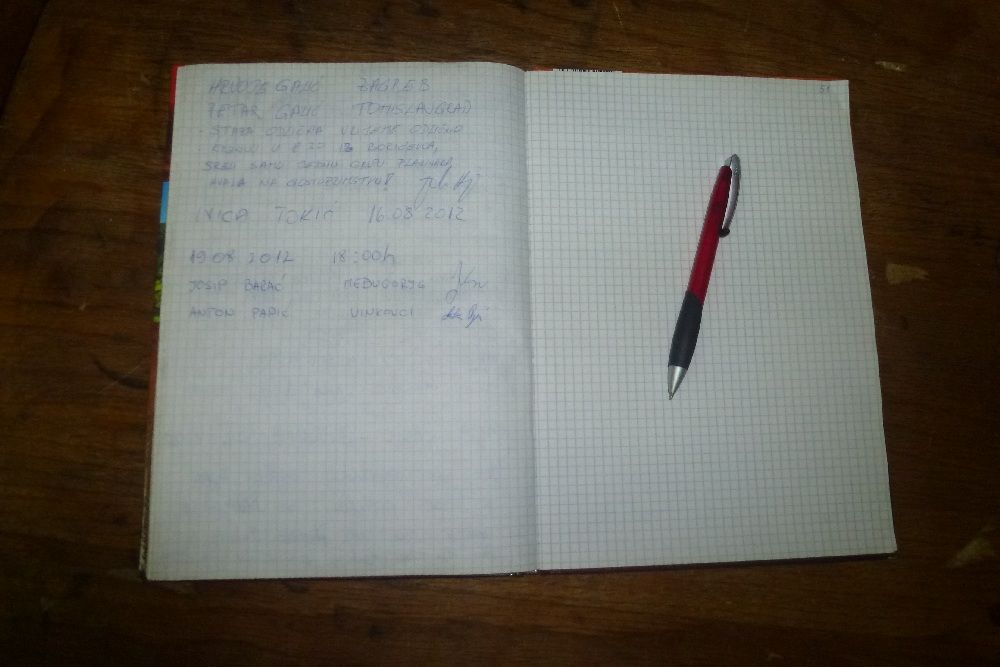 HRVOJE GALIĆ ZAGREB
PETAR GALIĆ TOMISLAVGRAD
- STAZA ODLIČNA VRIJEME ODLIČNO
SRELI SAMO JEDNU GRUPU PLANINARA,
HVALA NA GOSTOPRIMSTVU!
IVICA JOKIĆ 16.08 2012
19 08 2012 18:00h
JOSIP BARAĆ MEĐUGORJE
ANTON PAPIĆ VINKOVCI
51